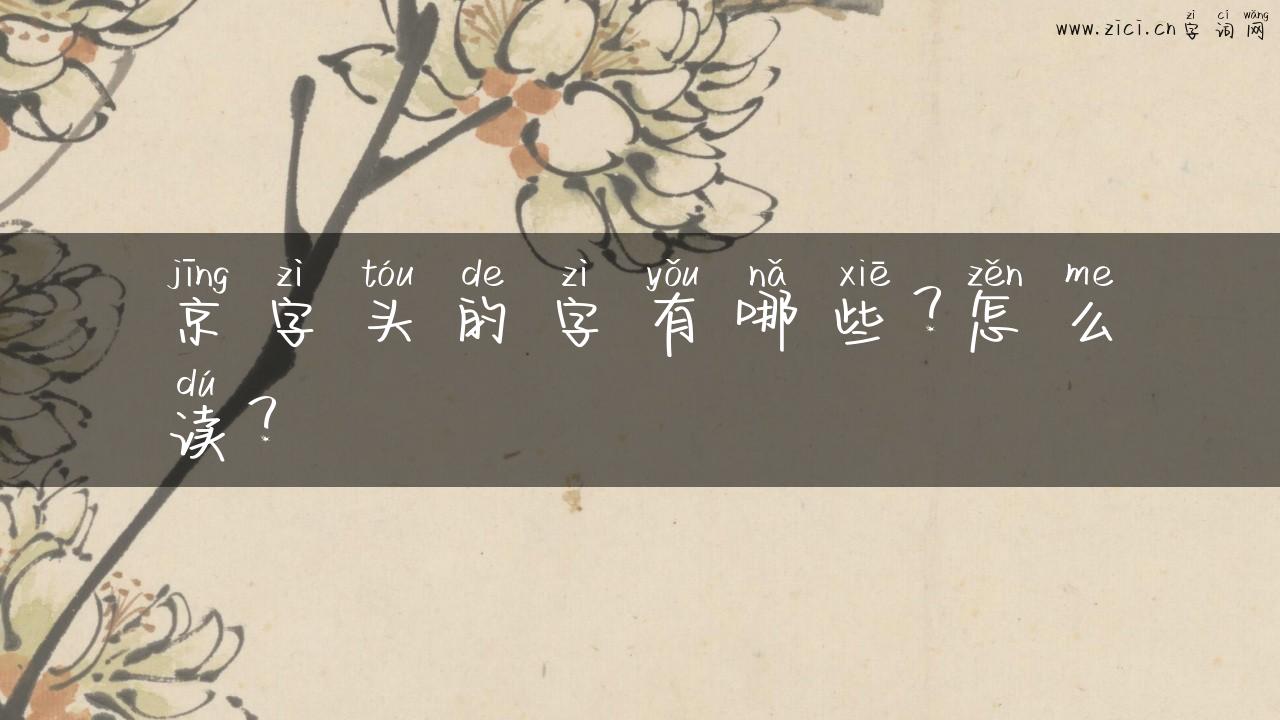 zì cí wǎng
www.zici.cn 字词网
jīng zì tóu de zì yǒu nǎ xiē zěn me
京字头的字有哪些？怎么
dú
读？